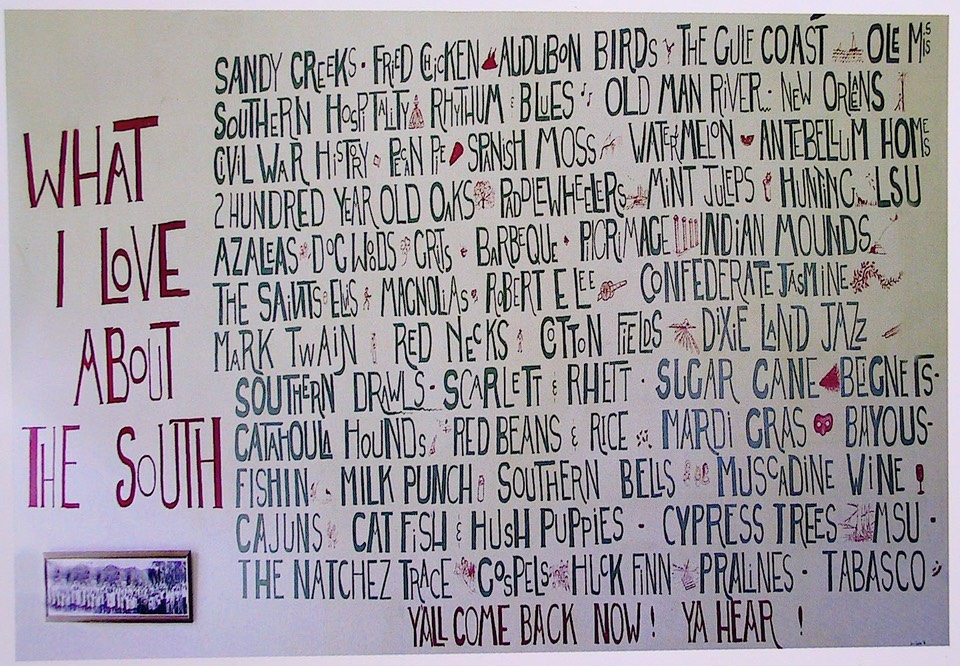 WHAT
I LOVE
ABOUT
THE SOUTH
SANDY CREEKS · FRIED CHICKEN AUDUBON BIRDS THE GULF COAST OLE MISS
SOUTHERN HOSPITALITY RHYTHUM & BLUES OLD MAN RIVER NEW ORLENS
CIVIL WAR HISTORY PECAN PIE SPANISH MOSS WATERMELON ANTEBELLUM HOMES
2 HUNDRED YEAR OLD OAKS PADDLEWHEELERS MINT JULEPS HUNTING LSU
AZALEAS DOGWOODS GRITS BARBEQUE PILGRIMAGE INDIAN MOUNDS
THE SAINTS ELVIS MAGNOLIAS ROBERT E LEE CONFEDERATE JASMINE
MARK TWAIN RED NECKS COTTON FIELDS DIXIE LAND JAZZ
SOUTHERN DRAWLS · SCARLETT & RHETT · SUGAR CANE BEIGNETS ·
CATAHOULA HOUNDS RED BEANS & RICE MARDI GRAS BAYOUS ·
FISHIN MILK PUNCH SOUTHERN BELLS MUSCADINE WINE
CAJUNS CAT FISH & HUSH PUPPIES · CYPRESS TREES MSU ·
THE NATCHEZ TRACE GOSPELS HUCK FINN PRALINES · TABASCO
YALL COME BACK NOW! YA HEAR !